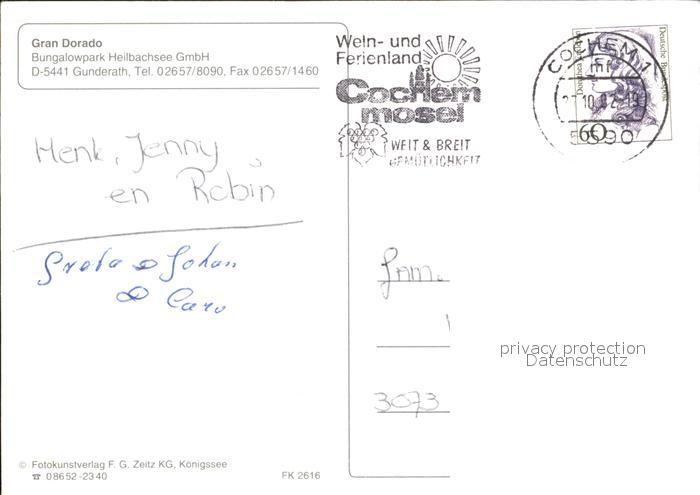 Gran Dorado
Bungalowpark Heilbachsee GmbH
D-5441 Gunderath, Tel. 02657/8090, Fax 02657/1460
Wein- und
Ferienland
Cochem
mosel
WEIT & BREIT
GEMÜTLICHKEIT
COCHEM 1
5590
Deutsche Bundespost
60
Henk, Jenny
en Robin
Greta & Johan
& Caro
Fam.
3073
privacy protection
Datenschutz
© Fotokunstverlag F. G. Zeitz KG, Königssee
☎ 08652-2340
FK 2616